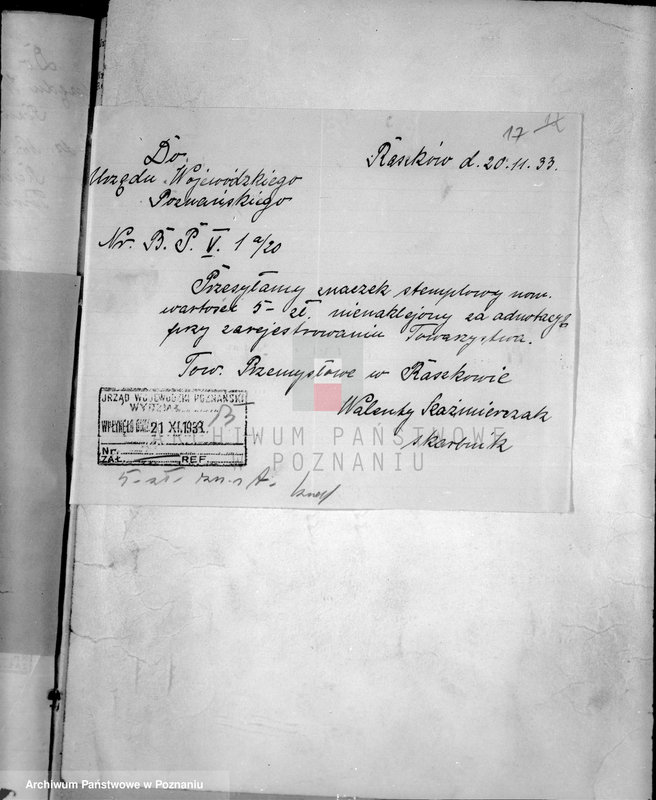 17 IX
Do
Raszków d. 20.11.33.
Urzędu Wojewódzkiego
Poznańskiego
Nr. B. P. V. 1 a/20
Przesyłamy znaczek stemplowy nom.
wartości 5- zł. nienaklejony za adnotacyę
przy zarejestrowaniu Towarzystwa.
Tow. Przemysłowe w Raszkowie
Walenty Kaźmierczak
skarbnik
URZĄD WOJEWÓDZKI POZNAŃSKI
WYDZIAŁ B
WPŁYNĘŁO DNIA 21 XI. 1933
Nr.
ZAŁ. REF.
5.- zł.
ARCHIWUM PAŃSTWOWE
W POZNANIU
Archiwum Państwowe w Poznaniu